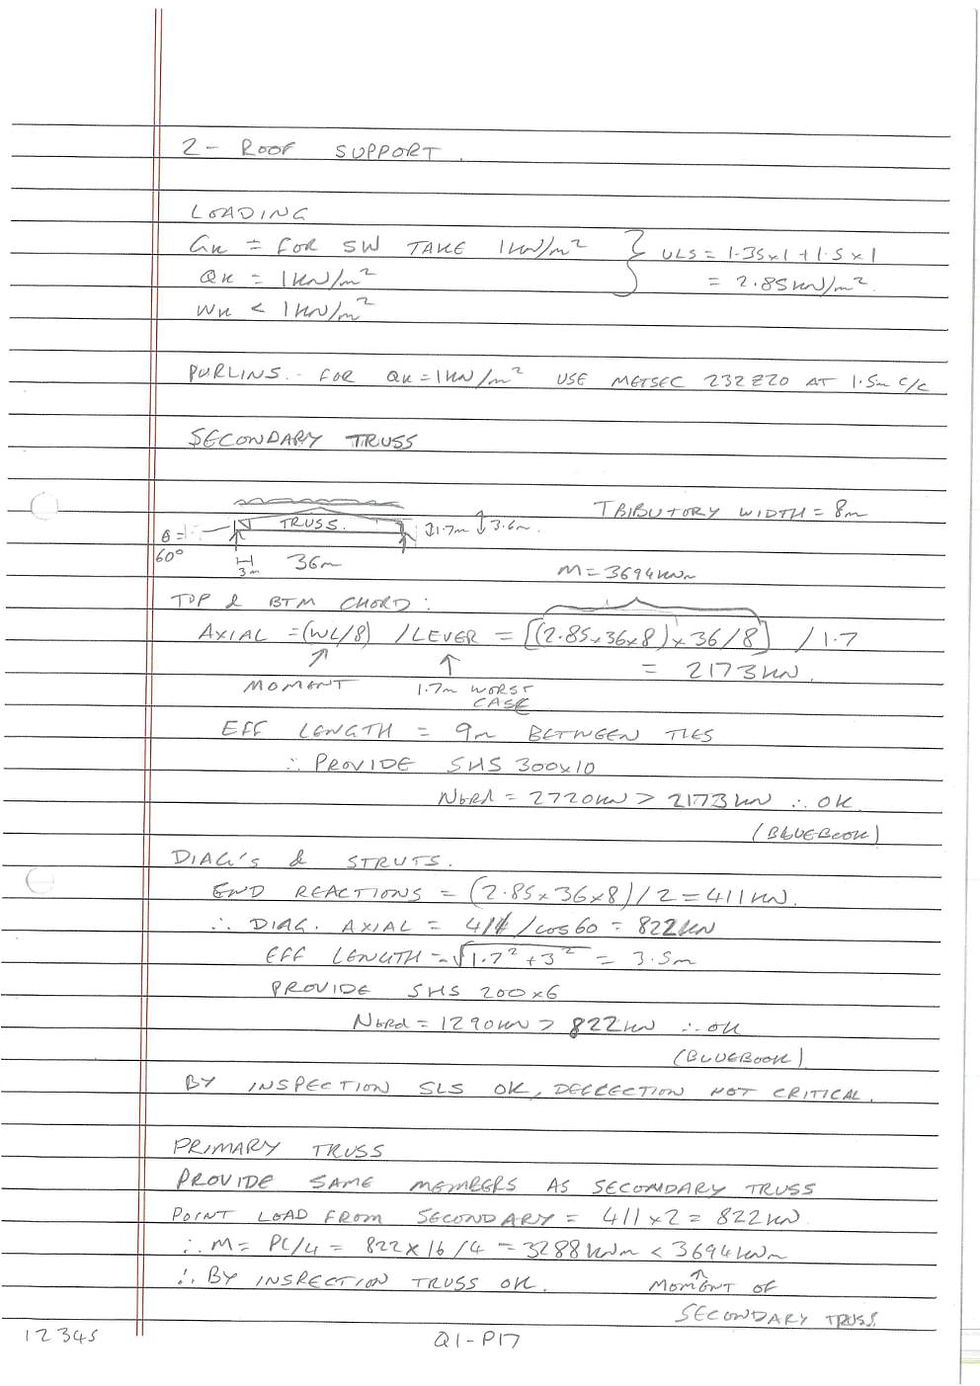 2 - ROOF SUPPORT.
LOADING
GK = FOR SW TAKE 1KN/m² } ULS = 1.35x1 + 1.5x1
QK = 1KN/m² = 2.85KN/m².
WK < 1KN/m²
PURLINS. FOR QK=1KN/m² USE METSEC 232Z20 AT 1.5m C/C
SECONDARY TRUSS
TRIBUTORY WIDTH = 8m
TRUSS. 1.7m 3.6m.
θ =
60°
3m 36m
M = 3694KNm
TOP & BTM CHORD:
AXIAL = (WL/8) / LEVER = [(2.85x36x8) x 36/8] / 1.7
= 2173KN.
MOMENT 1.7m WORST
CASE
EFF LENGTH = 9m BETWEEN TIES
∴ PROVIDE SHS 300x10
Nbrd = 2720KN > 2173KN ∴ OK
(BLUEBOOK)
DIAG'S & STRUTS.
END REACTIONS = (2.85x36x8)/2 = 411KN.
∴ DIAG. AXIAL = 411/cos60 = 822KN
EFF LENGTH = √1.7²+3² = 3.5m
PROVIDE SHS 200x6
Nbrd = 1290KN > 822KN ∴ OK
(BLUEBOOK)
BY INSPECTION SLS OK, DEFLECTION NOT CRITICAL.
PRIMARY TRUSS
PROVIDE SAME MEMBERS AS SECONDARY TRUSS
POINT LOAD FROM SECONDARY = 411x2 = 822KN
∴ M = PL/4 = 822x16/4 = 3288KNm < 3694KNm
∴ BY INSPECTION TRUSS OK. MOMENT OF
SECONDARY TRUSS
12345 Q1-P17